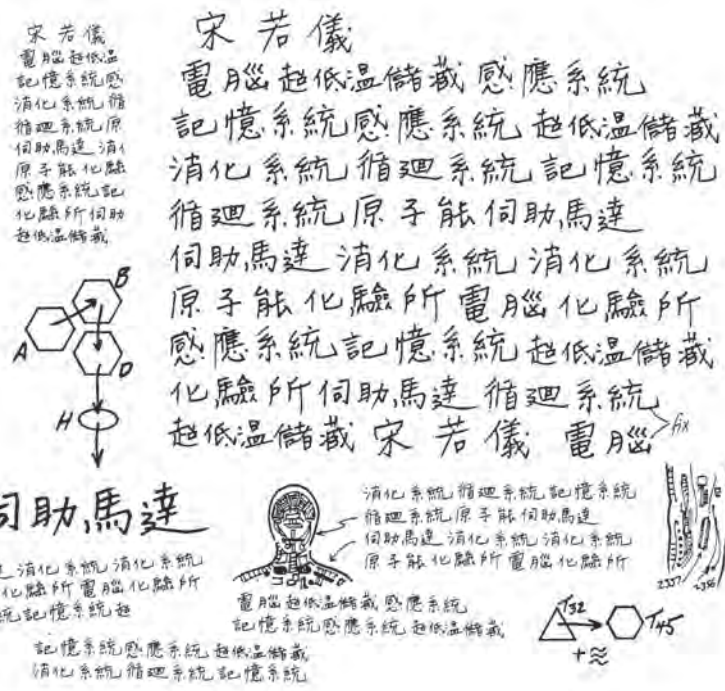 宋若儀
電腦超低温
記憶系統感
消化系統循
循廻系統原
伺助馬達消化
原子能化驗
感應系統記
化驗所伺助
超低温儲藏
宋若儀
電腦超低温儲藏感應系統
記憶系統感應系統超低温儲藏
消化系統循廻系統記憶系統
循廻系統原子能伺助馬達
伺助馬達消化系統消化系統
原子能化驗所電腦化驗所
感應系統記憶系統超低温儲藏
化驗所伺助馬達循廻系統
超低温儲藏宋若儀電腦
fix
A
B
D
H
伺助馬達
消化系統消化系統
化驗所電腦化驗所
統記憶系統超
記憶系統感應系統超低温儲藏
消化系統循廻系統記憶系統
消化系統循廻系統記憶系統
循廻系統原子能伺助馬達
伺助馬達消化系統消化系統
原子能化驗所電腦化驗所
電腦超低温儲藏感應系統
記憶系統感應系統超低温儲藏
2357
2358
T32
T45
+≈